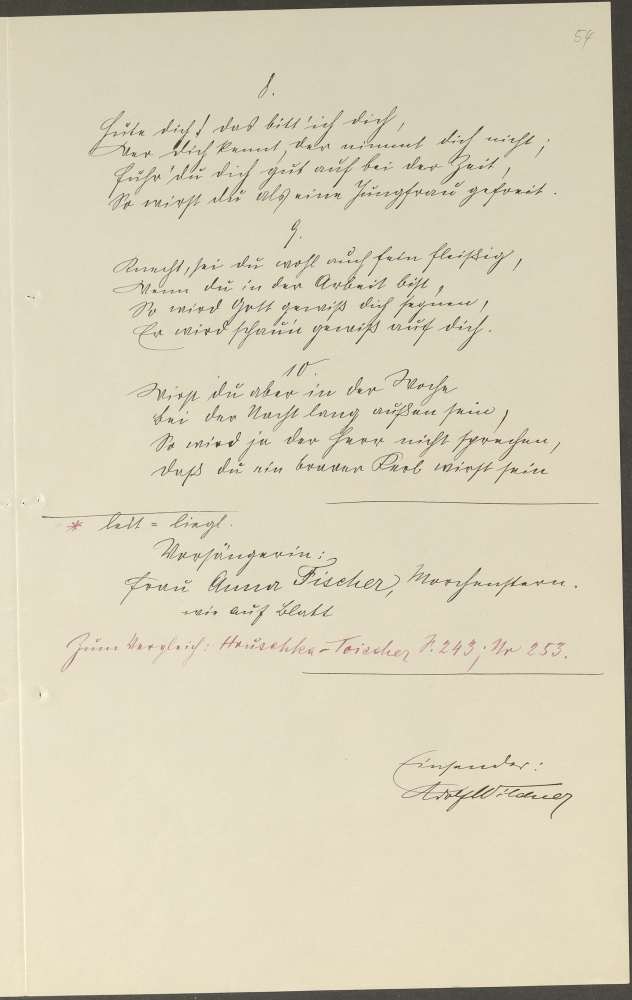 54
8.
Hüte dich! das bitt' ich dich,
Wer dich kennt, der nimmt dich nicht;
Führ' du dich gut auf bei der Zeit,
So wirst du als eine Jungfrau gefreit.
9.
Knecht, sei du wohl auch fein fleißig,
Wenn du in der Arbeit bist,
So wird Gott gewiß dich segnen,
Er wird schau'n gewiß auf dich.
10.
Wirst du aber in der Woche
bei der Nacht lang außen sein,
So wird ja der Herr nicht sprechen,
daß du ein braver Kerl wirst sein
* leit = liegt.
Vorsängerin:
Frau Anna Fischer, Morchenstern.
wie auf Blatt
Zum Vergleich: Hruschka-Toischer S. 243; Nr 253.
Einsender:
Adolf Wildner